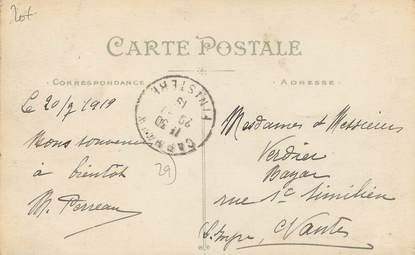 Lot
CARTE POSTALE
CORRESPONDANCE
ADRESSE
Le 20/7 1919
Bons souvenirs
à bientôt
M. Perreau
FINISTERE
29
Mesdames et Messieurs
Verdier
Bazar
rue St Similien
Nantes